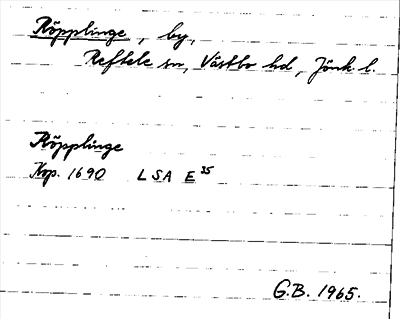 Röpplinge, by,
Reftele sn, Västbo hd, Jönk. l.
Röpplinge
Kop. 1690 LSA E 35
G.B. 1965.